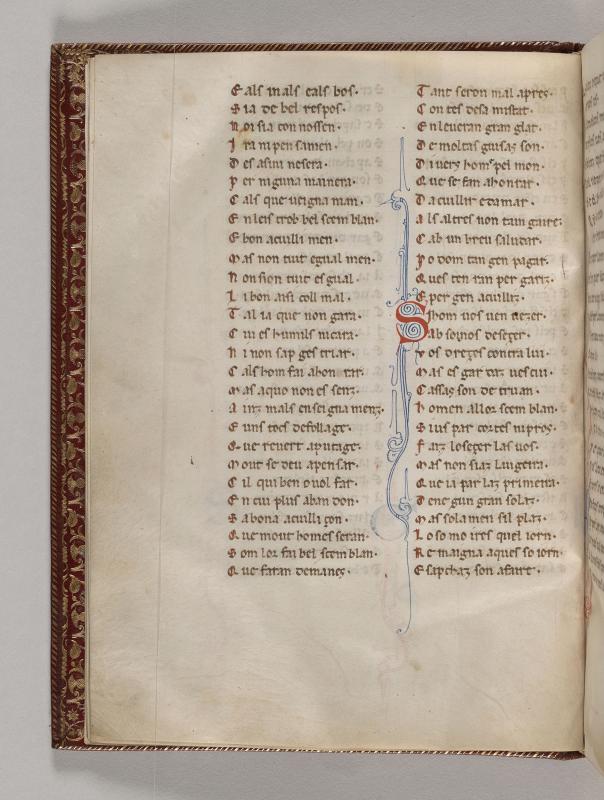 E als mals e als bos.
S ia de bel respos.
N oi sia con nossen.
I ra ni pensamen.
D esasinesera.
P er niguna mainera.
C als que ueigna man.
E n leis trob bel semblan.
E bon acuilli men.
M as non tuit egual men.
N on sion tuit esgual.
L i bon aisi coll mal.
T al ia que non gara.
C ui es humils ni cara.
N i non sap ges triar.
C als hom fai ahontar.
M as aquo non es senz.
A inz mals enseignamenz.
E uns tocs de follage.
Q ue reuert aputage.
M out se deu apensar.
C il qui ben o uol far.
E n cui plus aban don.
S a bona acuilli çon.
Q ue mout homes seran.
S om lor fai bel semblan.
Q ue faran demanes.
T ant seron mal apres.
C ontes desa mistat.
E nleueran gran glat.
D e moltas guisas son.
D iuers home pel mon.
Q ue se fan ahontar.
D acuillir et amar.
A ls altres non tain gaire.
C ab un breu saludar.
P odom tan gen pagar.
Q ues ten ran per gariz.
E per gen acuilliz.
S hom uos uen uezer.
S ab seinos desezer.
V os dreçes contra lui.
M as es gardaz uescui.
C assas son de truan.
H omen alloz semblan.
S ius par cortes ni pros.
F aiz lo sezer las uos.
M as non siaz laugeira.
Q ue ia par laz primeira.
D enegun gran solaz.
M as sola men sil plaz.
L o somo ires quel iorn.
R emaigna aques soiorn.
E sapchaz son afaire.